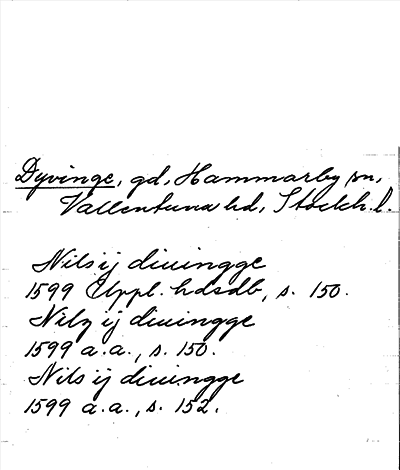 Dyvinge, gd, Hammarby sn,
Vallentuna hd, Stockh. l.
Nils ij diuingge
1599 Uppl. hdsdb, s. 150.
Nilz ij diuingge
1599 a.a., s. 150.
Nils ij diuingge
1599 a.a., s. 152.